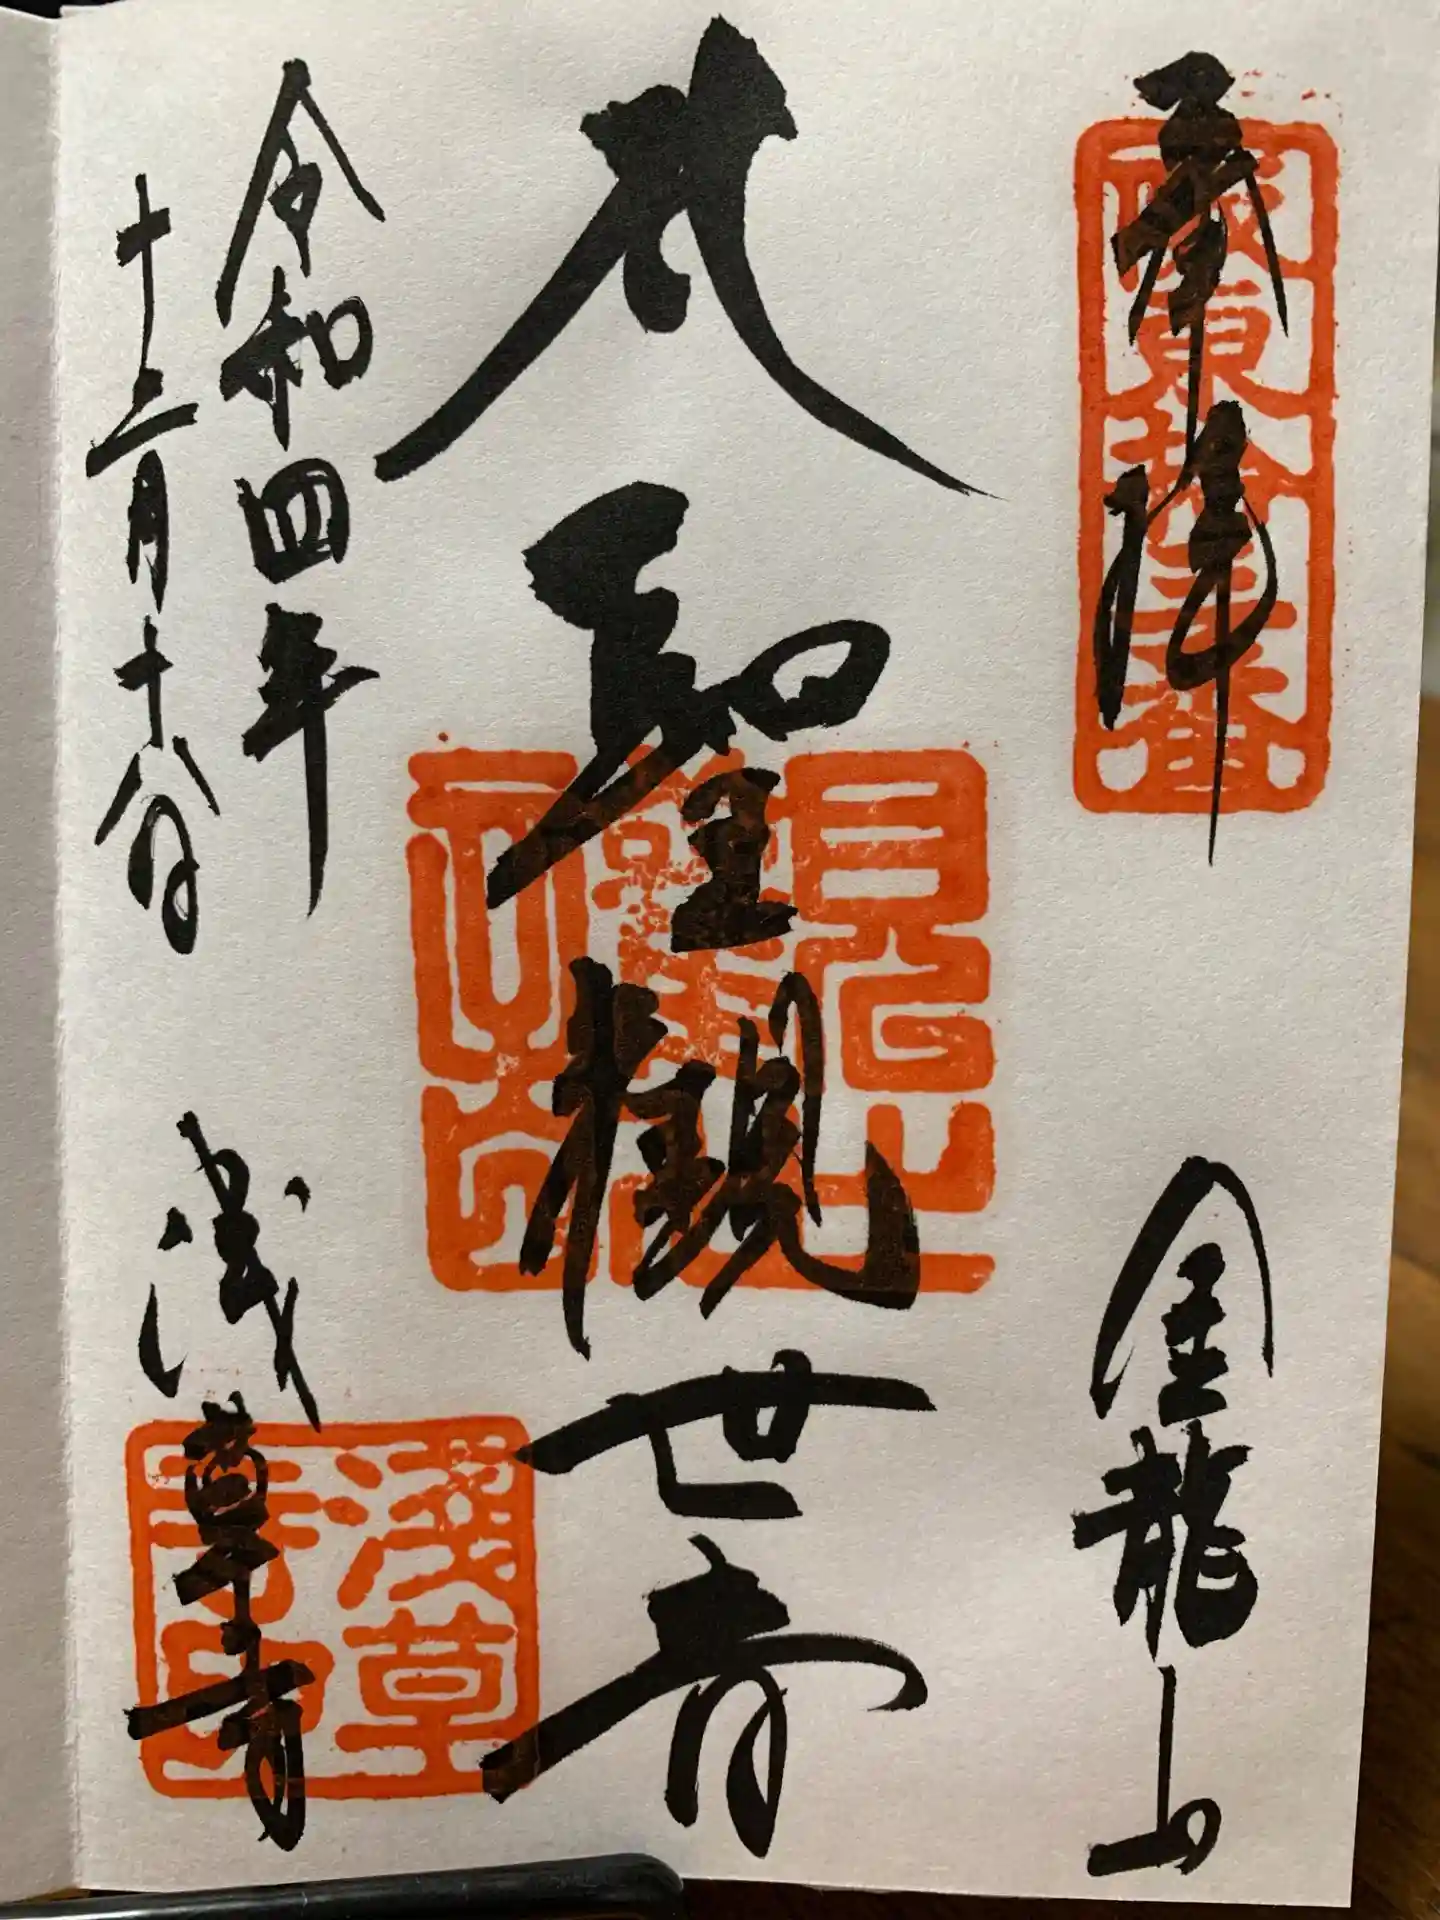 奉拝
坂東拾三番
金龍山
大聖観世音
令和四年
十二月十八日
浅草寺
淺草寺印